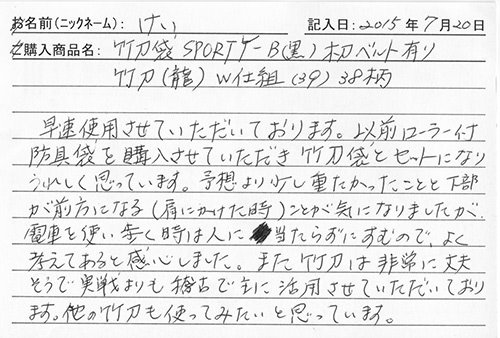 お名前(ニックネーム): けい 記入日: 2015年7月20日
ご購入商品名: 竹刀袋 SPORTケーB(黒)木刀ベルト有り
竹刀(龍) W仕組(39) 38柄
早速使用させていただいております。以前ローラー付
防具袋を購入させていただき竹刀袋とセットになり
うれしく思っています。予想より少し重たかったことと下部
が前方になる(肩にかけた時)ことが気になりましたが、
電車を使い歩く時は人に当たらずにすむので、よく
考えてあると感心しました。また竹刀は非常に丈夫
そうで実戦よりも稽古で主に活用させていただいており
ます。他の竹刀も使ってみたいと思っています。